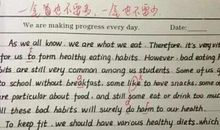 一个字也不要多,一个也不要少
We are making progress every day. Date:
As we all know, we are what we eat. Therefore, it's very
for us to form healthy eating habits. However, bad eating
bits are still very common among us students. Some of us
to school without breakfast, some like to have snacks, some
are particular about food, and still some eat or drink too
ll these bad habits will surely do harm to our health.
To keep fit, we should have various healthy diets. which